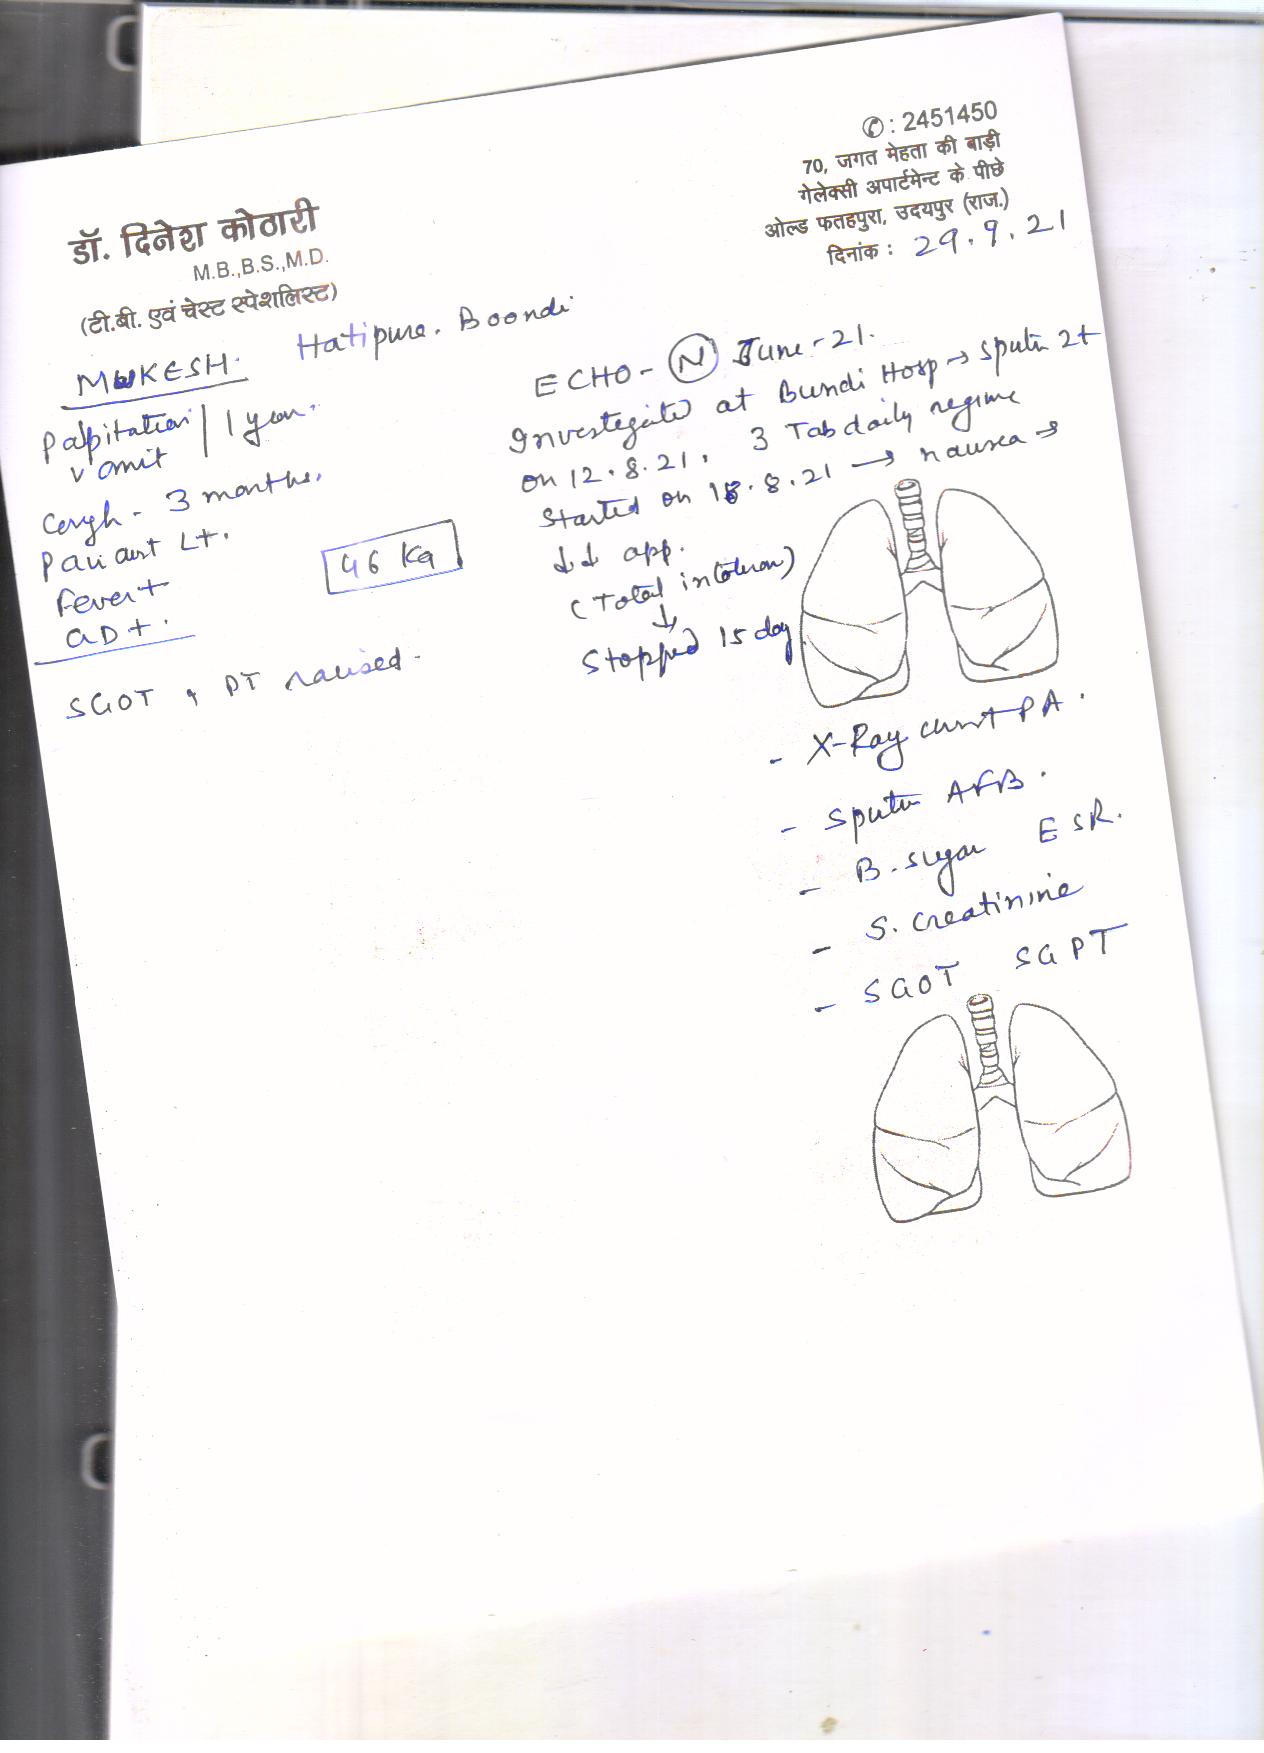 ✆ : 2451450
70, जगत मेहता की बाड़ी
गेलेक्सी अपार्टमेन्ट के पीछे
ओल्ड फतहपुरा, उदयपुर (राज.)
दिनांक : 29.9.21
डॉ. दिनेश कोठारी
M.B.,B.S.,M.D.
(टी.बी. एवं चेस्ट स्पेशलिस्ट)
MUKESH. Hatipura. Boondi
Palpitation | 1 year.
Vomit
Cough - 3 months.
Pain chest Lt.
Fever+
46 KG
SGOT & PT raised.
ECHO - N June - 21.
Investigated at Bundi Hosp → Sputum 2+
on 12.8.21. 3 Tab daily regime
Started on 18.8.21 → nausea →
↓↓ app.
↓
Stopped 15 day.
- X-Ray chest PA.
- Sputum AFB.
- B. sugar ESR.
- S. Creatinine
- SGOT SGPT